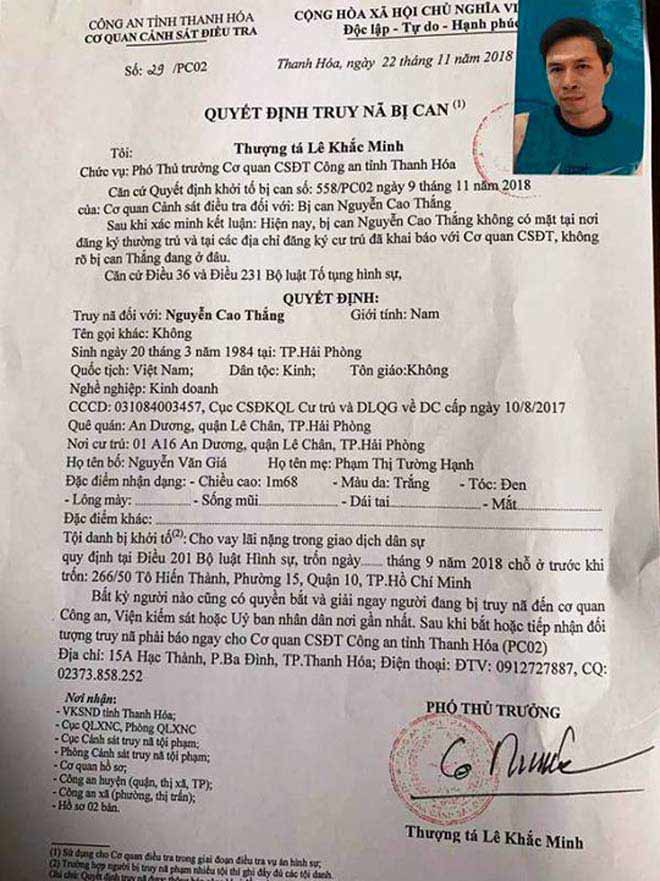 CÔNG AN TỈNH THANH HÓA
CƠ QUAN CẢNH SÁT ĐIỀU TRA
Số: 29 /PC02
CỘNG HÒA XÃ HỘI CHỦ NGHĨA VI
Độc lập - Tự do - Hạnh phúc
Thanh Hóa, ngày 22 tháng 11 năm 2018
QUYẾT ĐỊNH TRUY NÃ BỊ CAN (1)
Tôi: Thượng tá Lê Khắc Minh
Chức vụ: Phó Thủ trưởng Cơ quan CSĐT Công an tỉnh Thanh Hóa
Căn cứ Quyết định khởi tố bị can số: 558/PC02 ngày 9 tháng 11 năm 2018
của: Cơ quan Cảnh sát điều tra đối với: Bị can Nguyễn Cao Thắng
Sau khi xác minh kết luận: Hiện nay, bị can Nguyễn Cao Thắng không có mặt tại nơi
đăng ký thường trú và tại các địa chỉ đăng ký cư trú đã khai báo với Cơ quan CSĐT, không
rõ bị can Thắng đang ở đâu.
Căn cứ Điều 36 và Điều 231 Bộ luật Tố tụng hình sự,
QUYẾT ĐỊNH:
Truy nã đối với: Nguyễn Cao Thắng Giới tính: Nam
Tên gọi khác: Không
Sinh ngày 20 tháng 3 năm 1984 tại: TP.Hải Phòng
Quốc tịch: Việt Nam; Dân tộc: Kinh; Tôn giáo:Không
Nghề nghiệp: Kinh doanh
CCCD: 031084003457, Cục CSĐKQL Cư trú và DLQG về DC cấp ngày 10/8/2017
Quê quán: An Dương, quận Lê Chân, TP.Hải Phòng
Nơi cư trú: 01 A16 An Dương, quận Lê Chân, TP.Hải Phòng
Họ tên bố: Nguyễn Văn Giá Họ tên mẹ: Phạm Thị Tường Hạnh
Đặc điểm nhận dạng: - Chiều cao: 1m68 - Màu da: Trắng - Tóc: Đen
- Lông mày: ............ - Sống mũi ............ - Dái tai ............ - Mắt ............
Đặc điểm khác: ............
Tội danh bị khởi tố(2): Cho vay lãi nặng trong giao dịch dân sự
quy định tại Điều 201 Bộ luật Hình sự, trốn ngày...... tháng 9 năm 2018 chỗ ở trước khi
trốn: 266/50 Tô Hiến Thành, Phường 15, Quận 10, TP.Hồ Chí Minh
Bất kỳ người nào cũng có quyền bắt và giải ngay người đang bị truy nã đến cơ quan
Công an, Viện kiểm sát hoặc Uỷ ban nhân dân nơi gần nhất. Sau khi bắt hoặc tiếp nhận đối
tượng truy nã phải báo ngay cho Cơ quan CSĐT Công an tỉnh Thanh Hóa (PC02)
Địa chỉ: 15A Hạc Thành, P.Ba Đình, TP.Thanh Hóa; Điện thoại: ĐTV: 0912727887, CQ:
02373.858.252
Nơi nhận:
- VKSND tỉnh Thanh Hóa;
- Cục QLXNC, Phòng QLXNC
- Cục Cảnh sát truy nã tội phạm;
- Phòng Cảnh sát truy nã tội phạm;
- Cơ quan hồ sơ;
- Công an huyện (quận, thị xã, TP);
- Công an xã (phường, thị trấn);
- Hồ sơ 02 bản.
PHÓ THỦ TRƯỞNG
Thượng tá Lê Khắc Minh
(1) Sử dụng cho Cơ quan điều tra trong giai đoạn điều tra vụ án hình sự;
(2) Trường hợp người bị truy nã phạm nhiều tội thì ghi đầy đủ các tội danh.
Ghi chú: Quyết định truy nã được